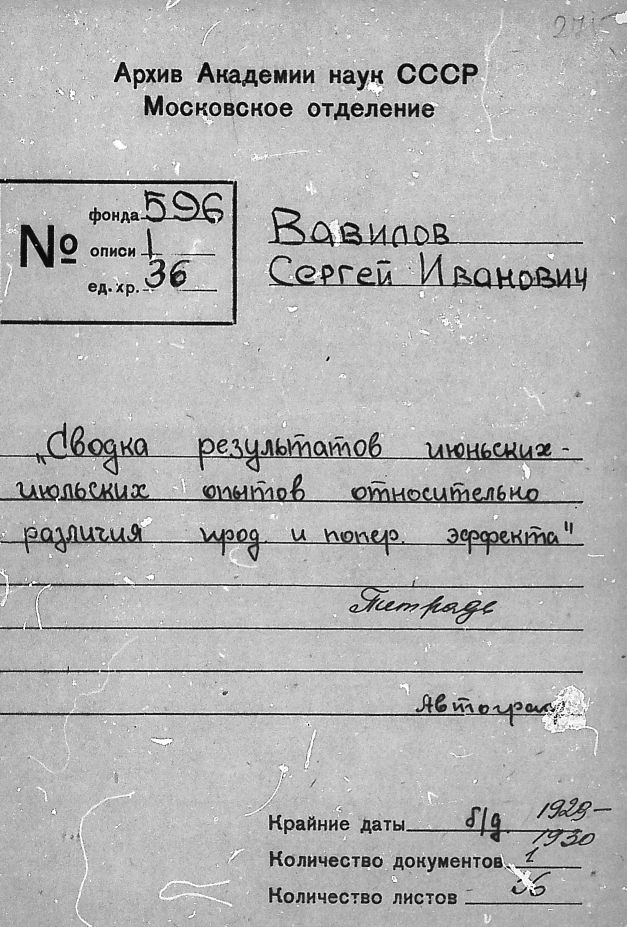 275
Архив Академии наук СССР
Московское отделение
№
фонда 596
описи 1
ед. хр. 36
Вавилов
Сергей Иванович
„Сводка результатов июньских-
июльских опытов относительно
различия прод. и попер. эффекта"
Тетрадь
Автограф
Крайние даты б/д. 1929–
1930
Количество документов 1
Количество листов 36